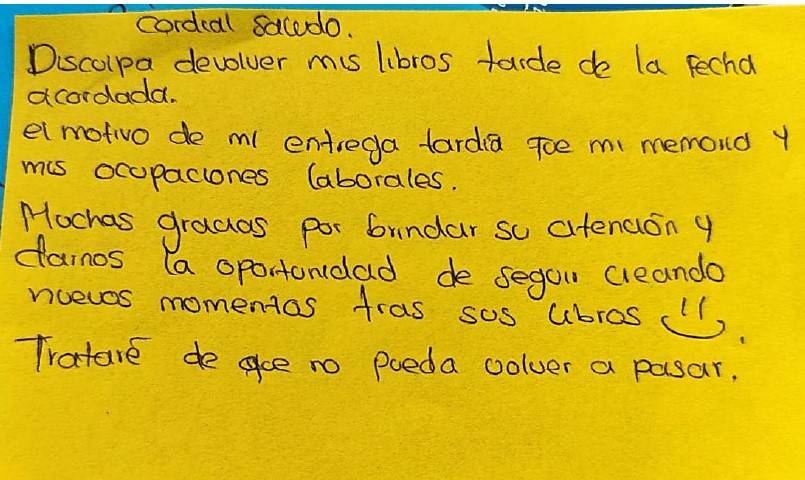 Cordial saludo.
Disculpa devolver mis libros tarde de la fecha
acordada.
el motivo de mi entrega tardía fue mi memoria y
mis ocupaciones laborales.
Muchas gracias por brindar su atención y
darnos la oportunidad de seguir creando
nuevos momentos tras sus libros
Trataré de que no pueda volver a pasar.